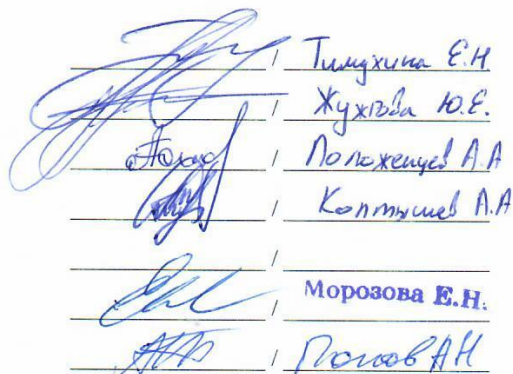 / Тимухина Е.Н
/ Жужгова Ю.Е.
/ Положенцев А.А
/ Коптышев А.А
/
/ Морозова Е.Н.
/ Попов АН